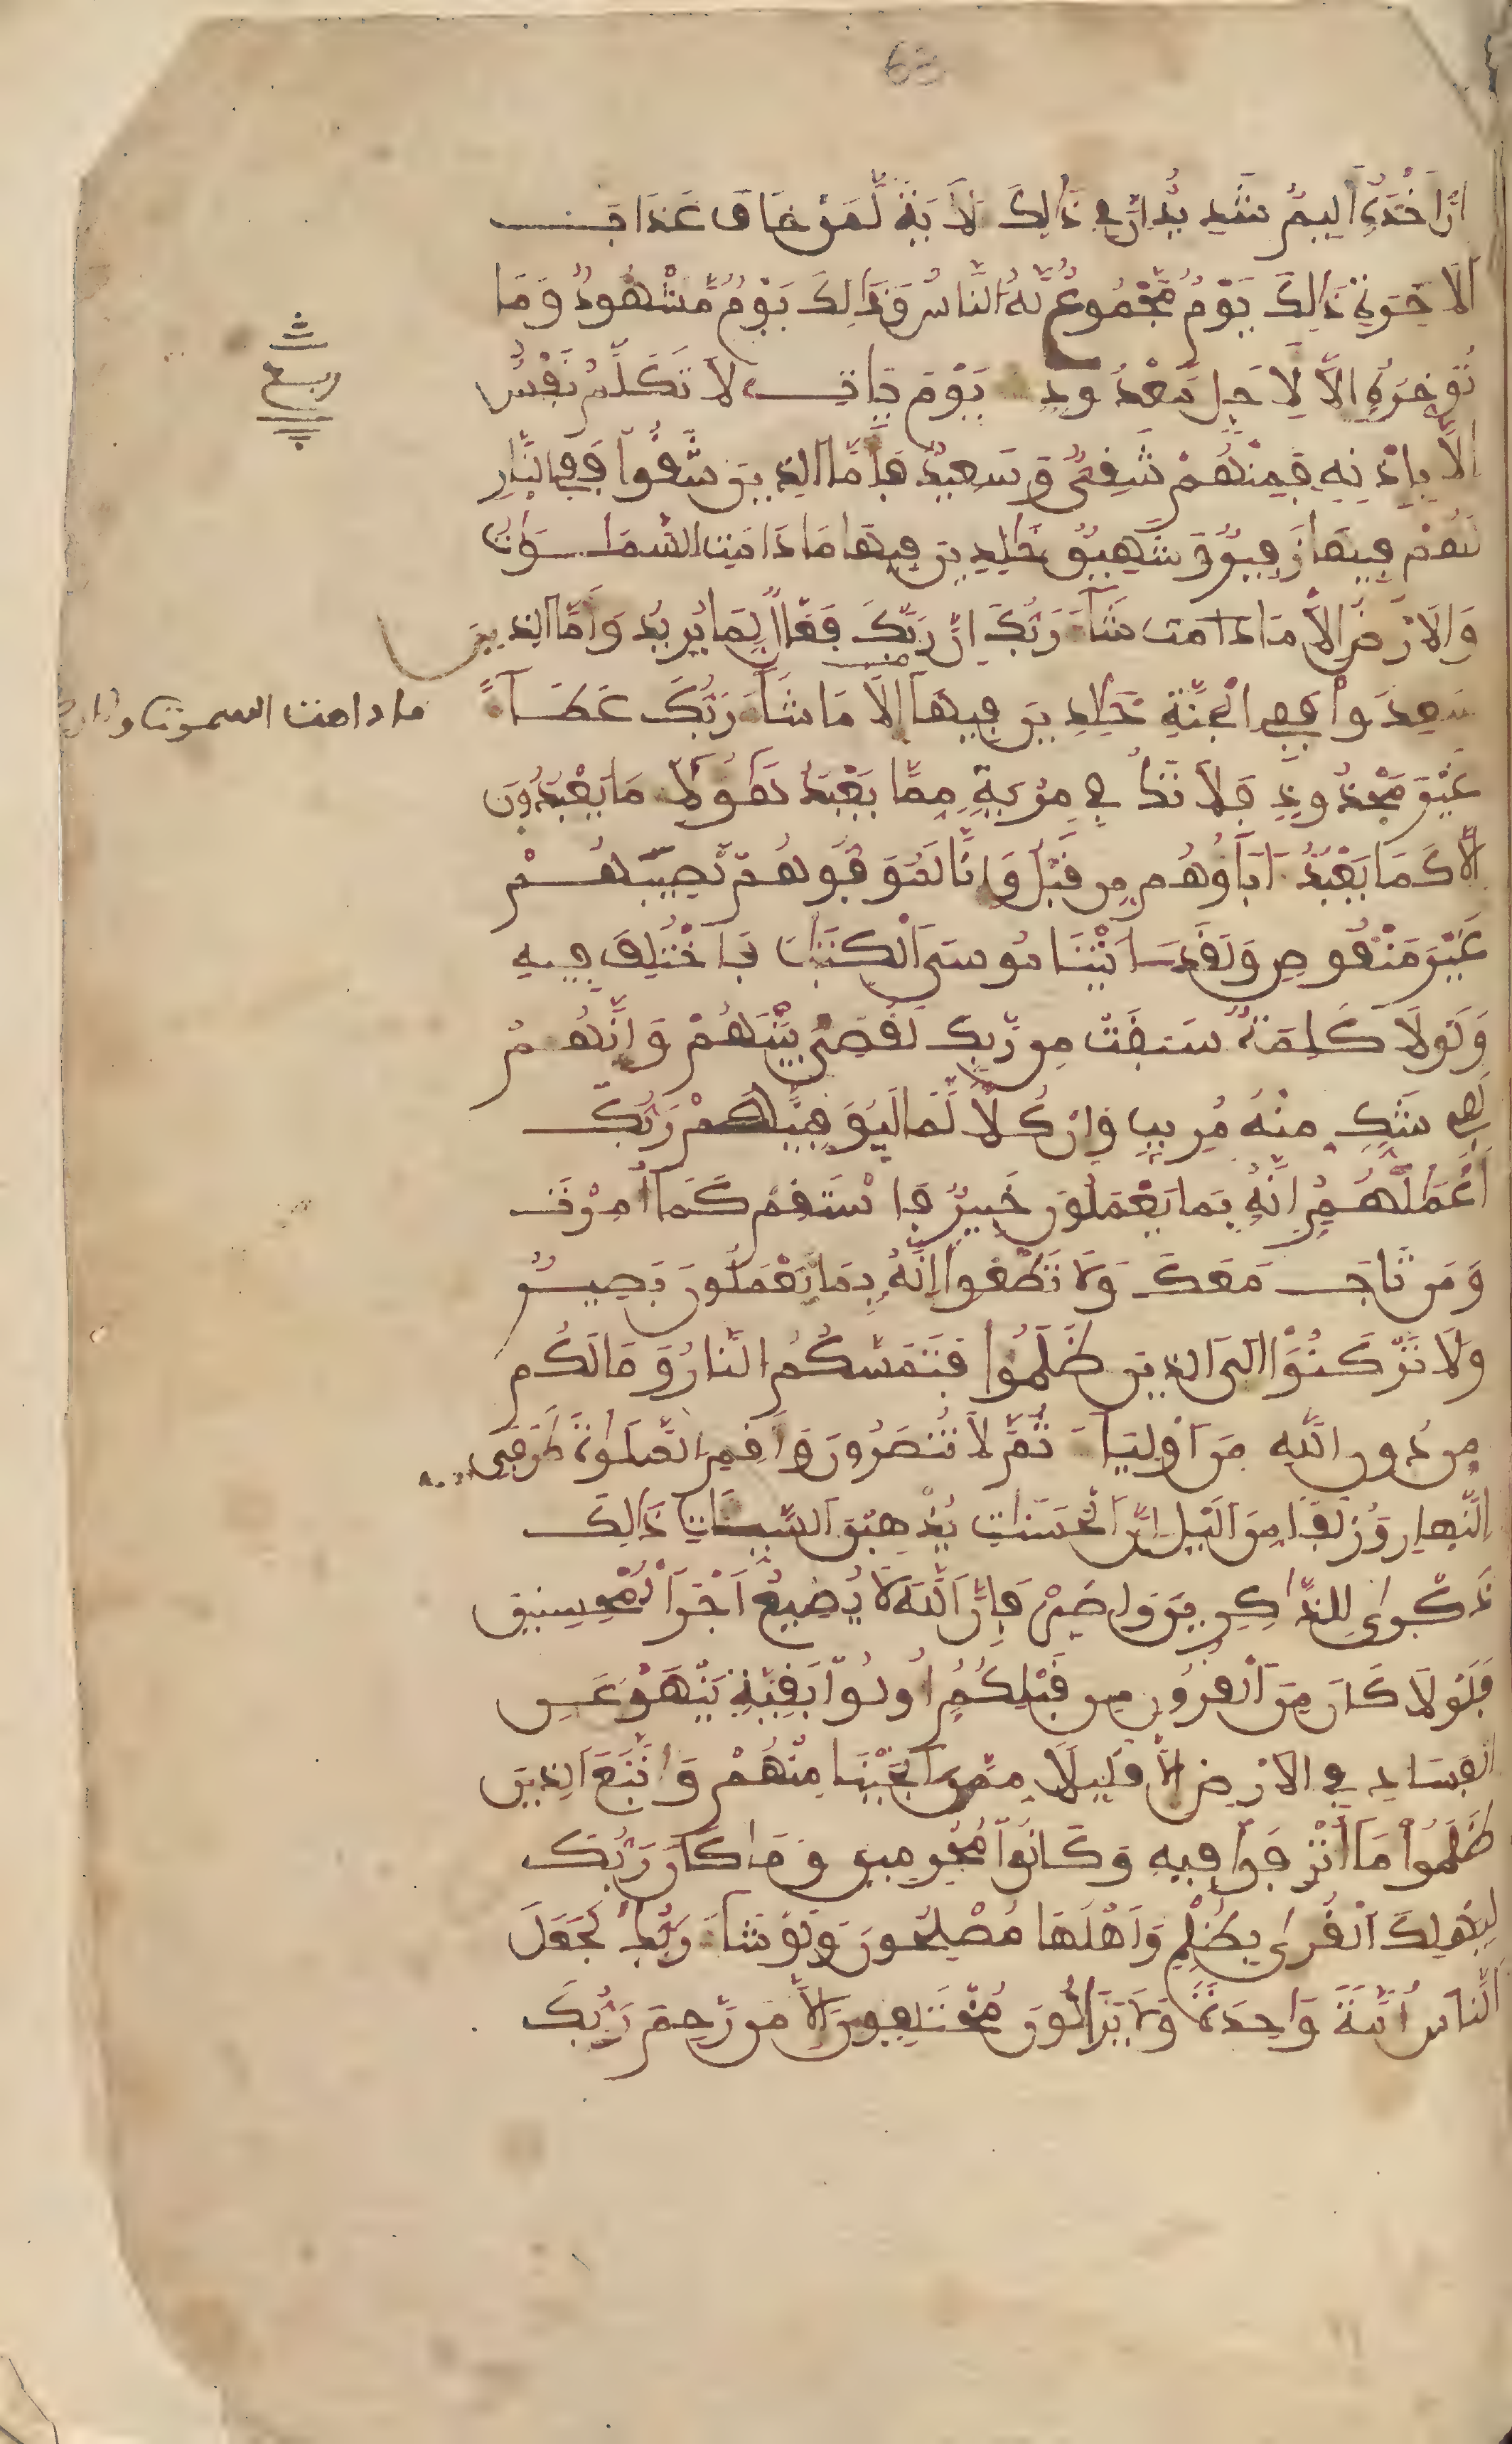 63
اِنَّ أَخْذَهُۥ أَلِيمٌ شَدِيدٌ اِنَّ فِي ذَالِكَ لَأَيَةً لِّمَنْ خَافَ عَذَابَ
الَاخِرَةِ ذَالِكَ يَوْمٌ مَّجْمُوعٌ لَّهُ النَّاسُ وَذَالِكَ يَوْمٌ مَّشْهُودٌ وَمَا
نُوَخِّرُهُۥ إِلَّا لِأَجَلٍ مَّعْدُودٍ يَوْمَ يَاتِ لَا تَكَلَّمُ نَفْسٌ
اِلَّا بِإِذْنِهِ فَمِنْهُمْ شَقِىٌّ وَسَعِيدٌ فَأَمَّا الذِينَ شَقُوا فَفِى النَّارِ
لَهُمْ فِيهَا زَفِيرٌ وَشَهِيقٌ خَٰلِدِينَ فِيهَا مَا دَامَتِ السَّمَٰوَٰتُ
وَالَارْضُ إِلَّا مَا دامت شَآءَ رَبُّكَ إِنَّ رَبَّكَ فَعَّالٌ لِّمَا يُرِيدُ وَأَمَّا الذِينَ
سَعِدُوا فَفِى الْجَنَّةِ خَٰلِدِينَ فِيهَآ إِلَّا مَا شَآءَ رَبُّكَ عَطَآءً
غَيْرَ مَجْذُوذٍ فَلَا تَكُ فِي مِرْيَةٍ مِّمَّا يَعْبُدُ هَٰؤُلَآءِ مَا يَعْبُدُونَ
إِلَّا كَمَا يَعْبُدُ ءَابَآؤُهُم مِّن قَبْلُ وَإِنَّا لَمُوَفُّوهُمْ نَصِيبَهُمْ
غَيْرَ مَنْقُوصٍ وَلَقَدَ اتَيْنَا مُوسَى الْكِتَٰبَ فَاخْتُلِفَ فِيهِ
وَلَوْلَا كَلِمَةٌ سَبَقَتْ مِن رَّبِّكَ لَقُضِىَ بَيْنَهُمْ وَإِنَّهُمْ
لَفِى شَكٍّ مِّنْهُ مُرِيبٍ وَإِن كُلًّا لَّمَا لَيُوَفِّيَنَّهُمْ رَبُّكَ
أَعْمَٰلَهُمْ إِنَّهُۥ بِمَا يَعْمَلُونَ خَبِيرٌ فَاسْتَقِمْ كَمَآ أُمِرْتَ
وَمَن تَابَ مَعَكَ وَلَا تَطْغَوْا إِنَّهُۥ بِمَا تَعْمَلُونَ بَصِيرٌ
وَلَا تَرْكَنُوٓا إِلَى الذِينَ ظَلَمُوا فَتَمَسَّكُمُ النَّارُ وَمَا لَكُم
مِّن دُونِ اللَّهِ مِنَ اَوْلِيَآءَ ثُمَّ لَا تُنصَرُونَ وَأَقِمِ الصَّلَوٰةَ طَرَفَىِ
النَّهارِ وَزُلَفًا مِّنَ الَّيْلِ إِنَّ الْحَسَنَٰتِ يُذْهِبْنَ السَّيِّئَاتِ ذَالِكَ
ذِكْرَىٰ لِلذَّٰكِرِينَ وَاصْبِرْ فَإِنَّ اللَّهَ لَا يُضِيعُ أَجْرَ الْمُحْسِنِينَ
فَلَوْلَا كَانَ مِنَ الْقُرُونِ مِن قَبْلِكُمُ أُولُوا بَقِيَّةٍ يَنْهَوْنَ عَنِ
الْفَسَادِ فِي الَارْضِ إِلَّا قَلِيلًا مِّمَّنَ اَنجَيْنَا مِنْهُمْ وَاتَّبَعَ الذِينَ
ظَلَمُوا مَآ أُتْرِفُوا فِيهِ وَكَانُوا مُجْرِمِينَ وَمَا كَانَ رَبُّكَ
لِيُهْلِكَ الْقُرَىٰ بِظُلْمٍ وَأَهْلُهَا مُصْلِحُونَ وَلَوْ شَآءَ رَبُّكَ لَجَعَلَ
النَّاسَ أُمَّةً وَاحِدَةً وَلَا يَزَالُونَ مُخْتَلِفِينَ إِلَّا مَن رَّحِمَ رَبُّكَ
ربع
ما دامت السموت والارض